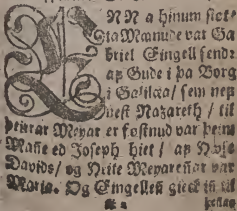 NN a hinum siet-
ta Maanude var Ga
briel Eingell sendr
ap Gude i þa Borg
i Galilæa/ sem nefn
vest Nazareth/ til
þeirrar Meyar er fostnud var þeim
Manne ed Joseph hiet/ ap Huse
Davids/ og Nafn Meyarennar var
Maria. Og Eingellen gieck in til